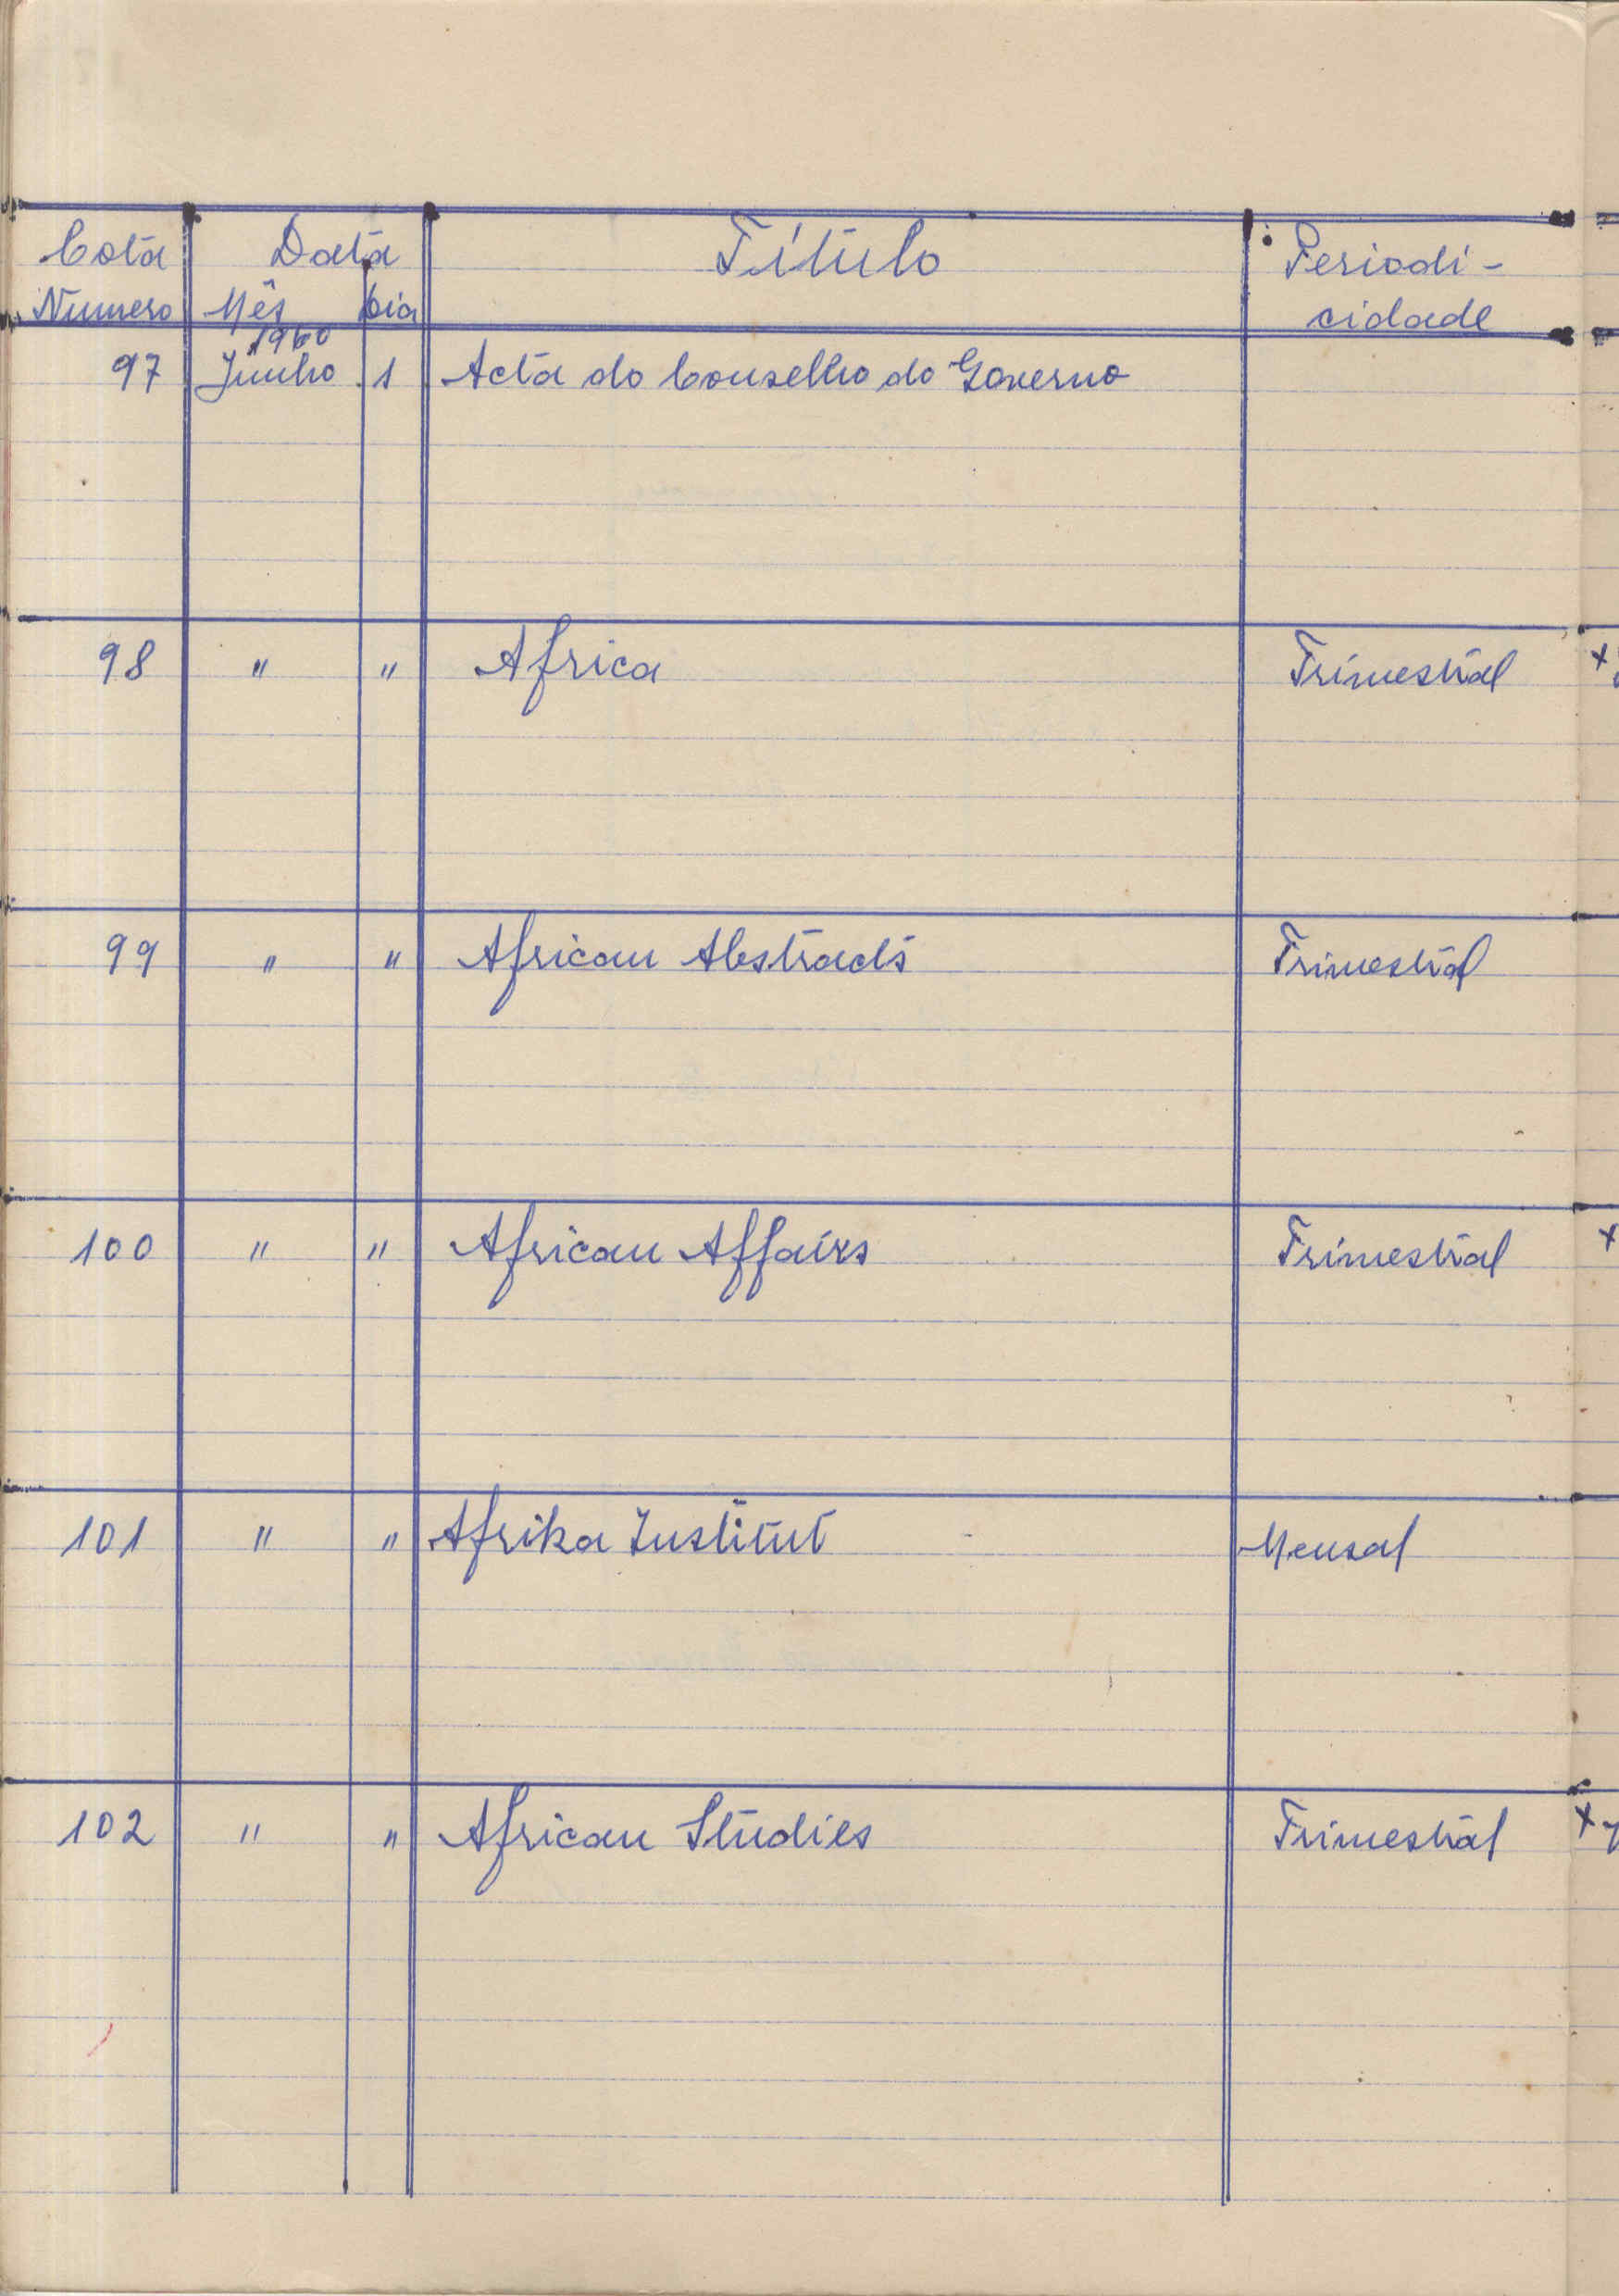 Cota Data Título Periodi-
Numero Mês Dia cidade
1960
97 Junho 1 Acta do Conselho do Governo
98 " " Africa Trimestral +
99 " " African Abstracts Trimestral
100 " " African Affairs Trimestral +
101 " " Afrika Institut Mensal
102 " " African Studies Trimestral +